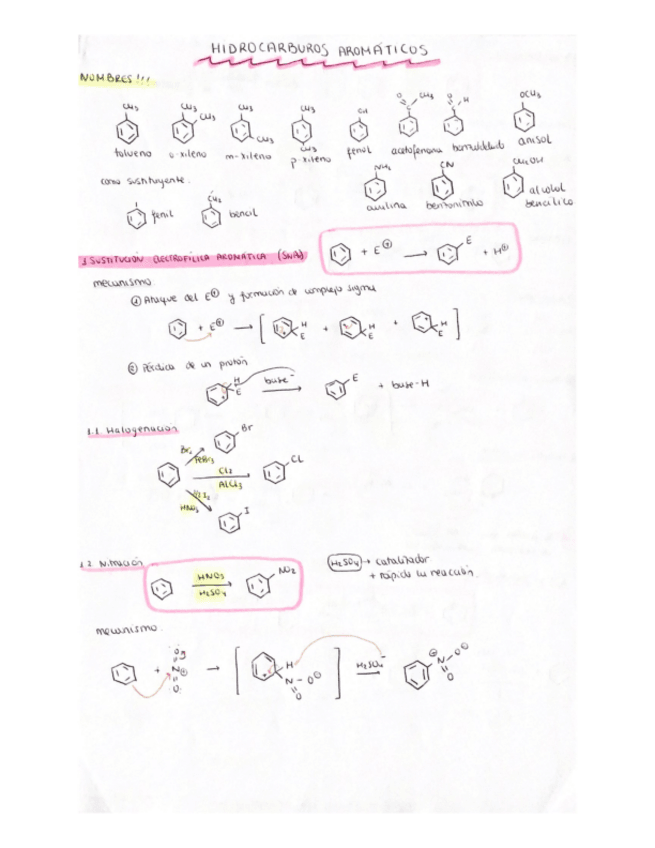 HIDROCARBUROS AROMÁTICOS
NOMBRES!!!
CH3 CH3 CH3 CH3 CH3 CH3 CH3 OH O C CH3 O C H OCH3
tolueno o-xileno m-xileno p-xileno fenol acetofenona benzaldehido anisol
como sustituyente. NH2 CN CH2OH
fenil CH2 bencil anilina benzonitrilo alcohol bencílico
1 SUSTITUCIÓN ELECTROFÍLICA AROMÁTICA (SEAr) + E⊕ → E + H⊕
mecanismo.
① Ataque del E⊕ y formación de complejo sigma
+ E⊕ → [ H E + H E + H E ]
② Pérdida de un protón
H E base⁻ → E + base-H
1.1. Halogenación
Br2 FeBr3 Br
Cl2 AlCl3 CL
1/2 I2 HNO3 I
1.2. Nitración
HNO3 H2SO4 NO2
H2SO4 → catalizador
+ rápida la reacción.
mecanismo.
+ O N⊕ O → [ H N - O⊖ O ] H2SO4⁻ → ⊕ N O⊖ O